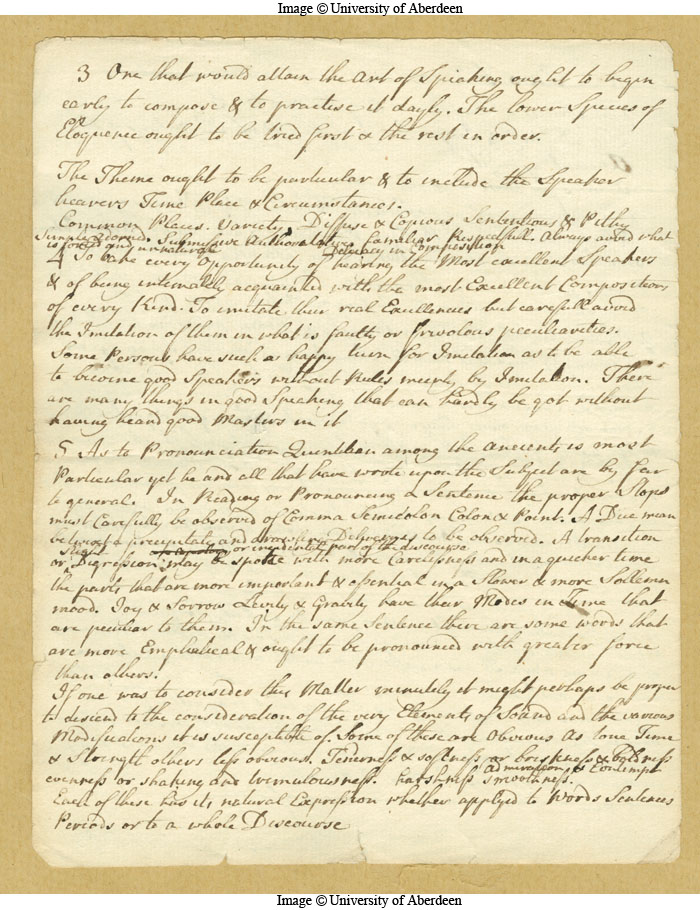 Image © University of Aberdeen
3 One that would attain the Art of Speaking ought to begin
early to compose & to practise it dayly. The lower Species of
Eloquence ought to be tried first & the rest in order.
The Theme ought to be particular & to include the Speaker
hearers Time Place & Circumstances.
Common Places. Variety. Diffuse & Copious Sententious & Pithy
Simple adorned. Submissive Authoritative familiar Respectfull. Always avoid what
is forced and unnatural Delicacy in Composition
4 To take every Opportunity of hearing the Most excellent Speakers
& of being intimately acquainted with the most Excellent Compositions
of every Kind. To imitate their real Excellences but carefull avoid
the Imitation of them in what is faulty or frivolous peculiarities.
Some Persons have such a happy turn for Imitation as to be able
to become good Speakers without Rules meerly by Imitation. There
are many things in good Speaking that can hardly be got without
having heard good Masters in it
5 As to Pronounciation Quintilian among the ancients is most
Particular yet he and all that have wrote upon the Subject are by far
to general. In Reading or Pronouncing a Sentence the proper Stops
must Carefully be observed of Comma Semicolon Colon & Point. A Due mean
betwixt a precipitate and drawling Delivery is to be observed. A transition
slight or incidental part of the discourse
or Digression may be spoke with more Carelesness and in a quicker time
the parts that are more important & essential in a Slower & more Sollemn
mood. Joy & Sorrow Levity & Gravity have their Modes in Time that
are peculiar to them. In the same Sentence there are some words that
are more Emphatical & ought to be pronounced with greater force
than others.
If one was to consider this Matter minutely it might perhaps be proper
to descend to the consideration of the very Elements of Sound and the various
Modifications it is susceptible of. Some of these are Obvious as tone Time
& Strength others less obvious. Tenderness & softness or briskness & boldness
Admiration & Contempt
evenness or shaking and tremulousness. harshness Smoothness.
Each of these has its natural Expression whether applyed to Words Sentences
Periods or to a whole Discourse
Image © University of Aberdeen